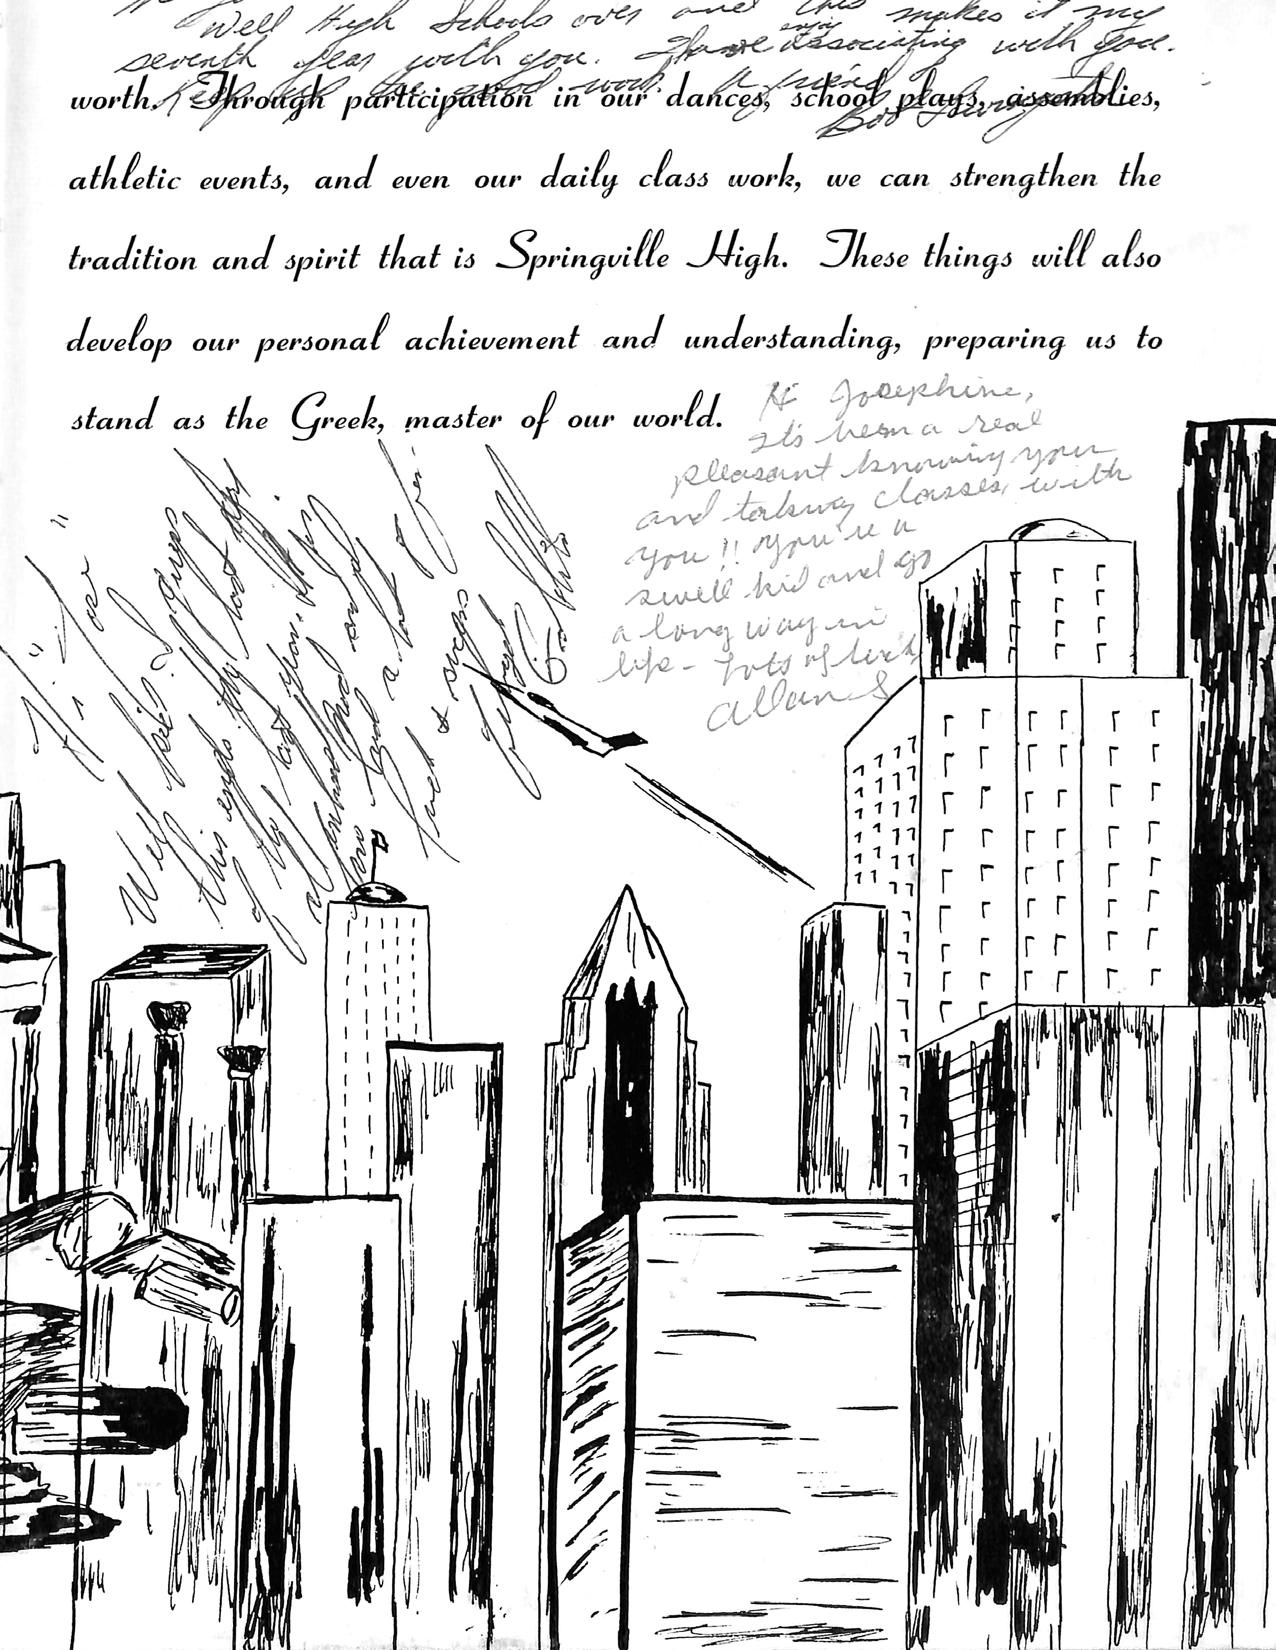 Well High Schools over and this makes it my
seventh year with you. Have enjoy associating with you.
Keep up the good work. A friend
Bob
worth. Through participation in our dances, school plays, assemblies,
athletic events, and even our daily class work, we can strengthen the
tradition and spirit that is Springville High. These things will also
develop our personal achievement and understanding, preparing us to
stand as the Greek, master of our world.
Hi Josephine,
It's been a real
pleasant knowing you
and taking classes with
you!! You're a
swell kid and go
a long way in
life - Lots of luck
Allan S
Hi "Joe"
Well kid I guess
this ends the last day
of the last year.
and
luck & success